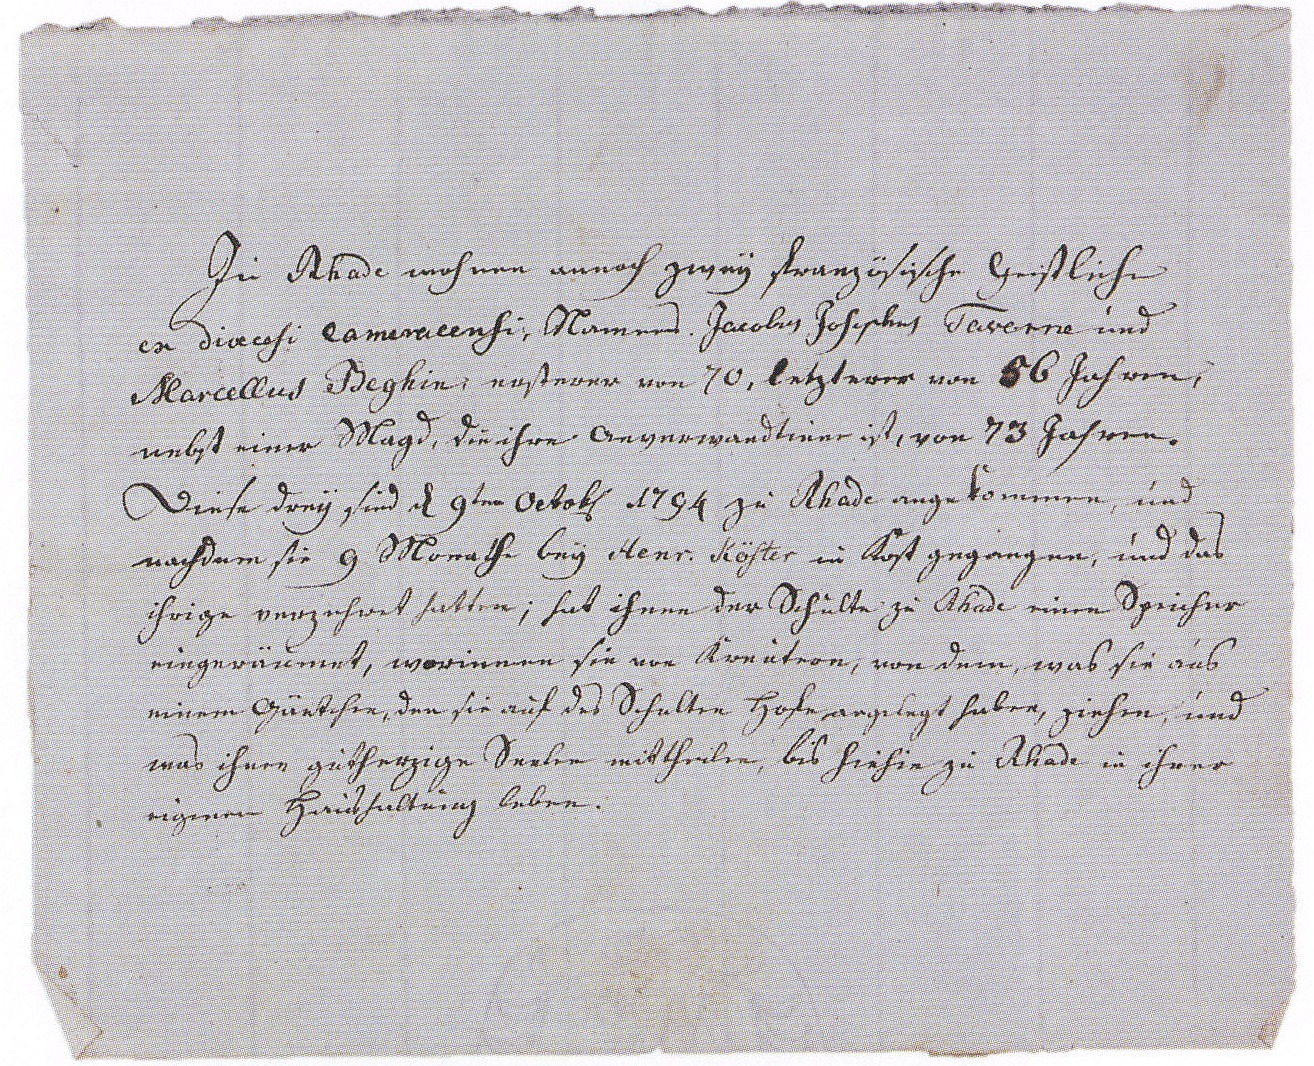 In Rhade wohnen annoch zweÿ französische Geistliche
ex dioecesi Cameracensi, Namens Jacobus Josephus Taverne und
Marcellus Beghin, ersterer von 70, letzterer von 56 Jahren,
nebst einer Magd, die ihre Anverwandtinn ist, von 73 Jahren.
Diese dreÿ sind d 9ten Octobr 1794 zu Rhade angekommen, und
nachdem sie 9 Monathe beÿ Henr. Köster in Kost gegangen, und das
ihrige verzehret hatten; hat ihnen der Schulte zu Rhade einen Speicher
eingeräumet, worinnen sie von Kräutern, von dem, was sie aus
einem Gärtchen, den sie auf des Schulten Hofe angelegt haben, ziehen, und
was ihnen gutherzige Seelen mittheilen, bis hiehin zu Rhade in ihrer
eigenen Haushaltung leben.